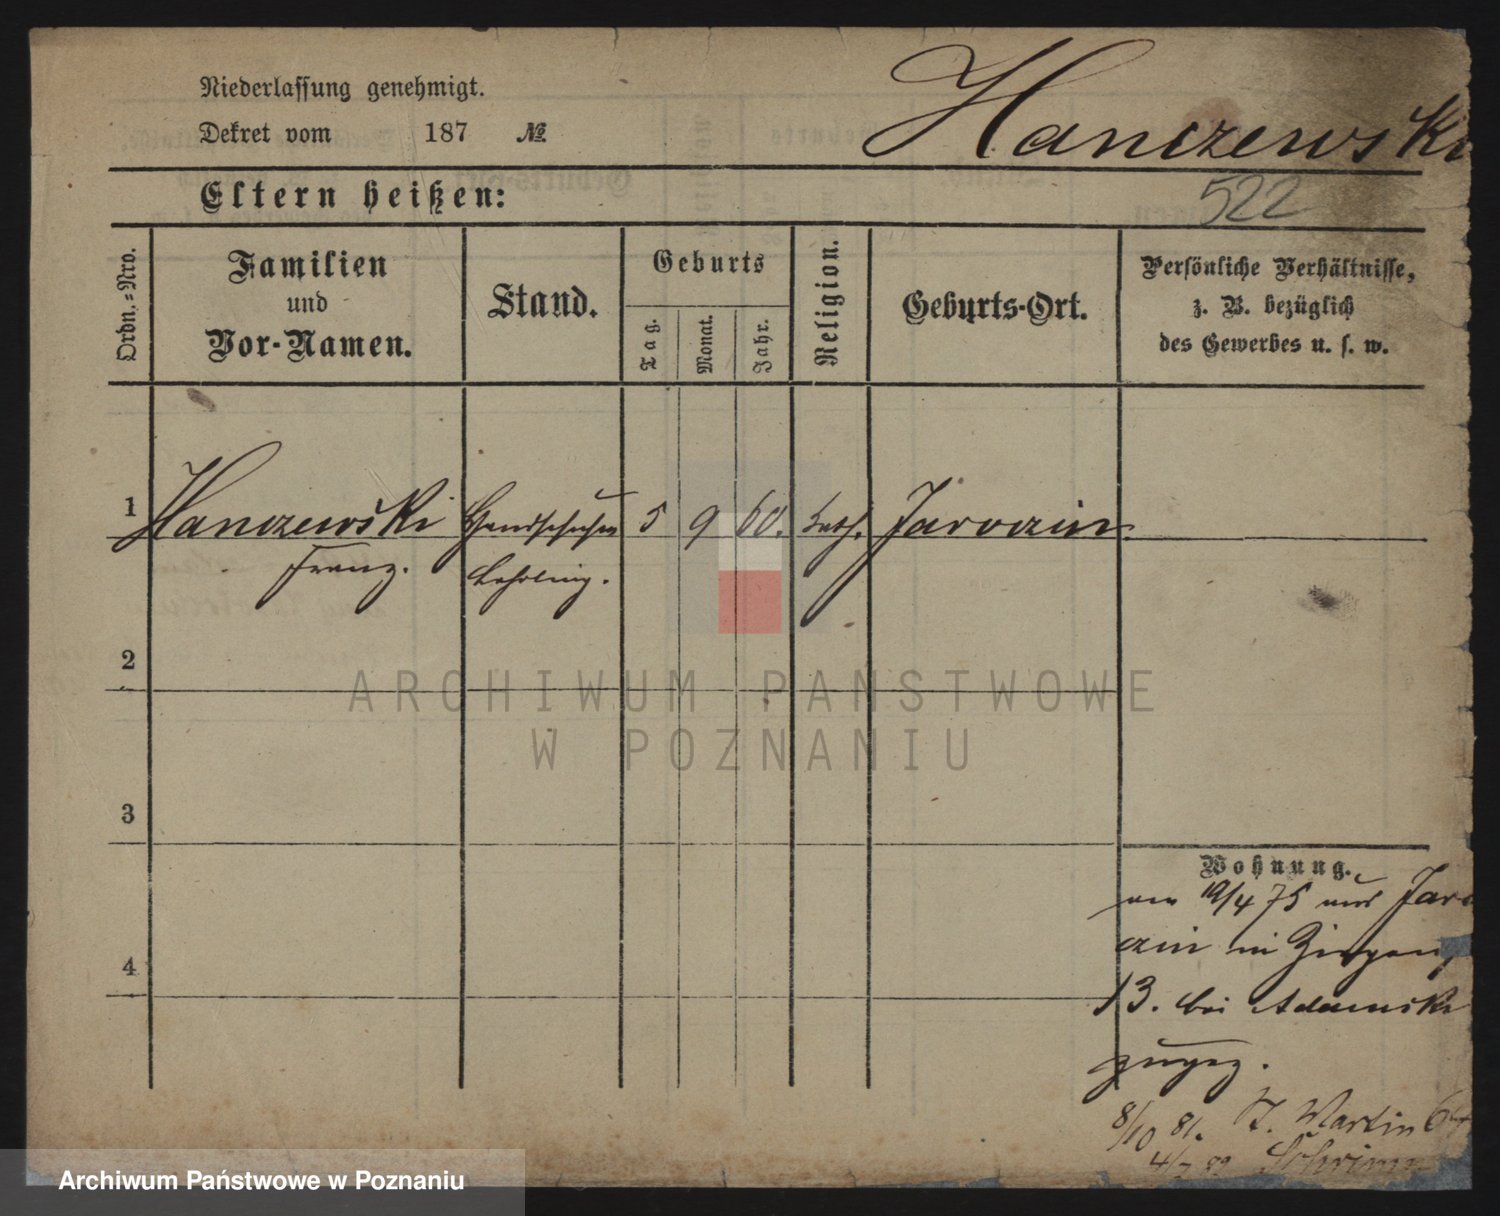 Niederlassung genehmigt.
Hanczewski
Dekret vom 187 №
Eltern heißen:
522
Ordn.=Nro.
Familien und Vor-Namen.
Stand.
Geburts
Tag.
Monat.
Jahr.
Religion.
Geburts-Ort.
Persönliche Verhältnisse,
z. B. bezüglich
des Gewerbes u. s. w.
1 Hanczewski Handschuhm 5 9 60. kath. Jaroczin
Franz. Lehrling.
2
3
4
Wohnung.
am 19/4 75 aus Jaro
czin in
13. bei Adamski
zugez.
8/10 81. St. Martin 64
4/7 82 Schrimm
ARCHIWUM PAŃSTWOWE
W POZNANIU
Archiwum Państwowe w Poznaniu